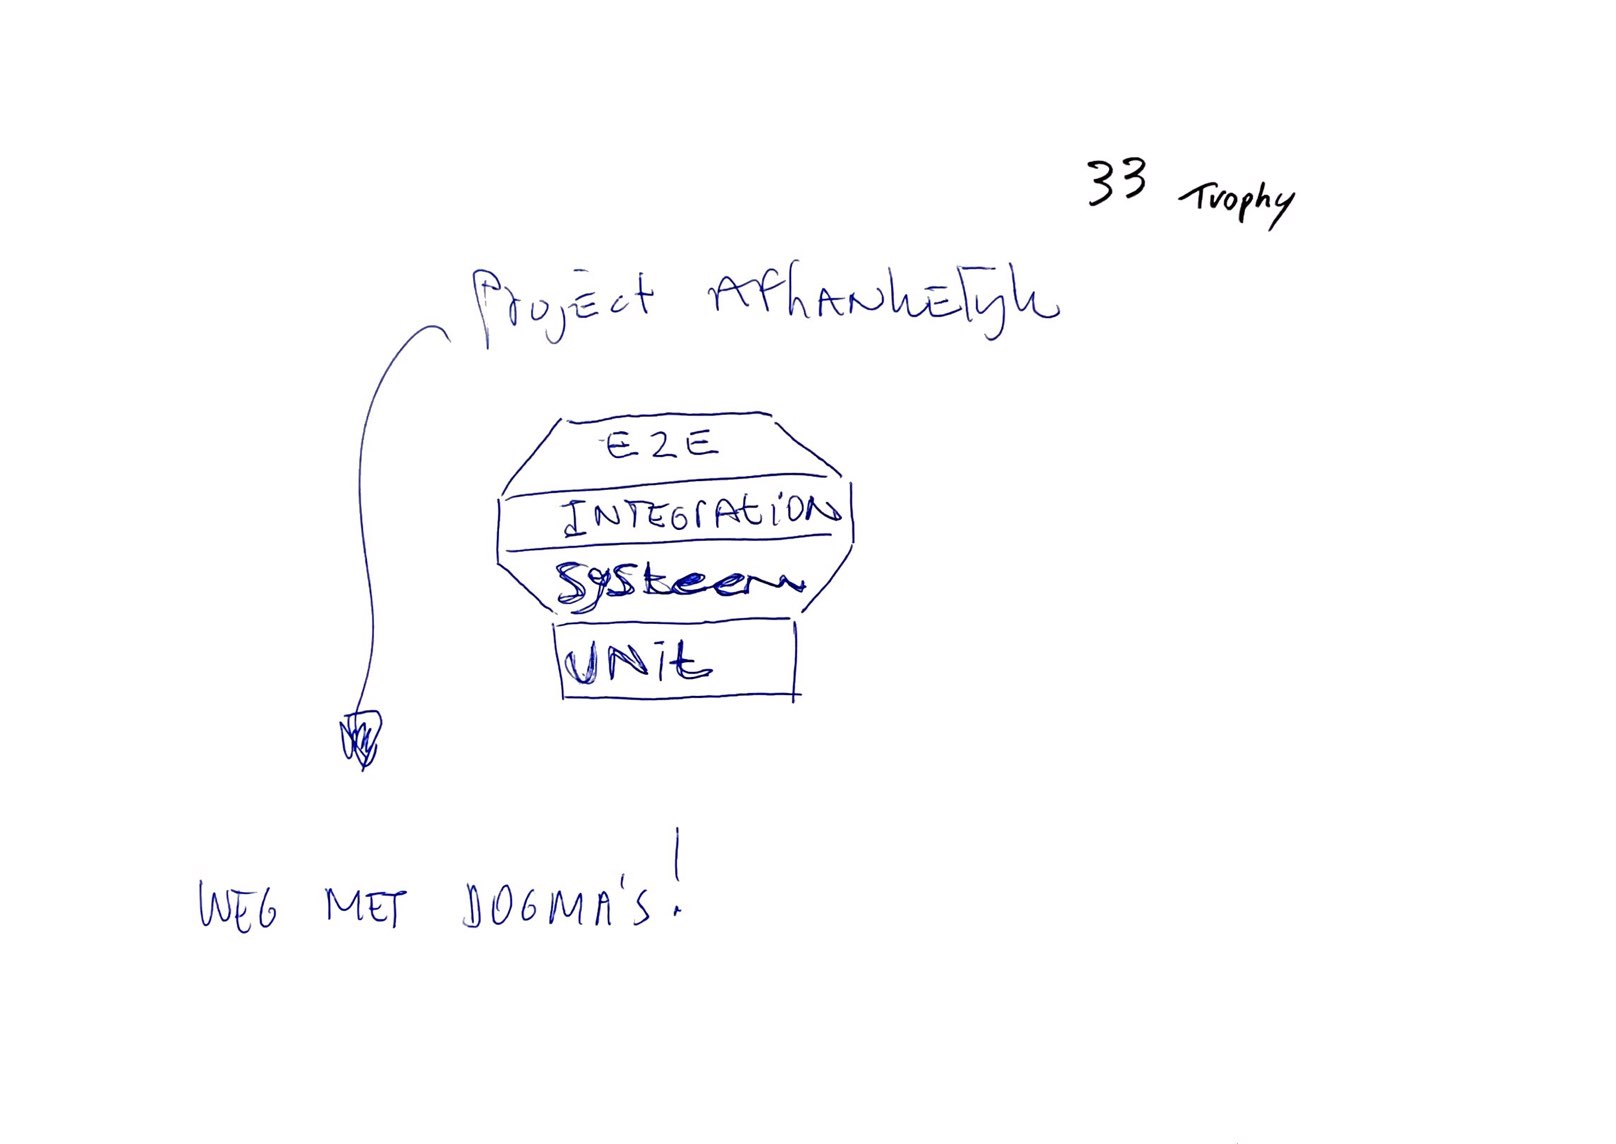 33 Trophy
Project AfhANkElijk
E2E
INTEGrAtiON
Systeem
UNit
WEG MET DOGMA'S!